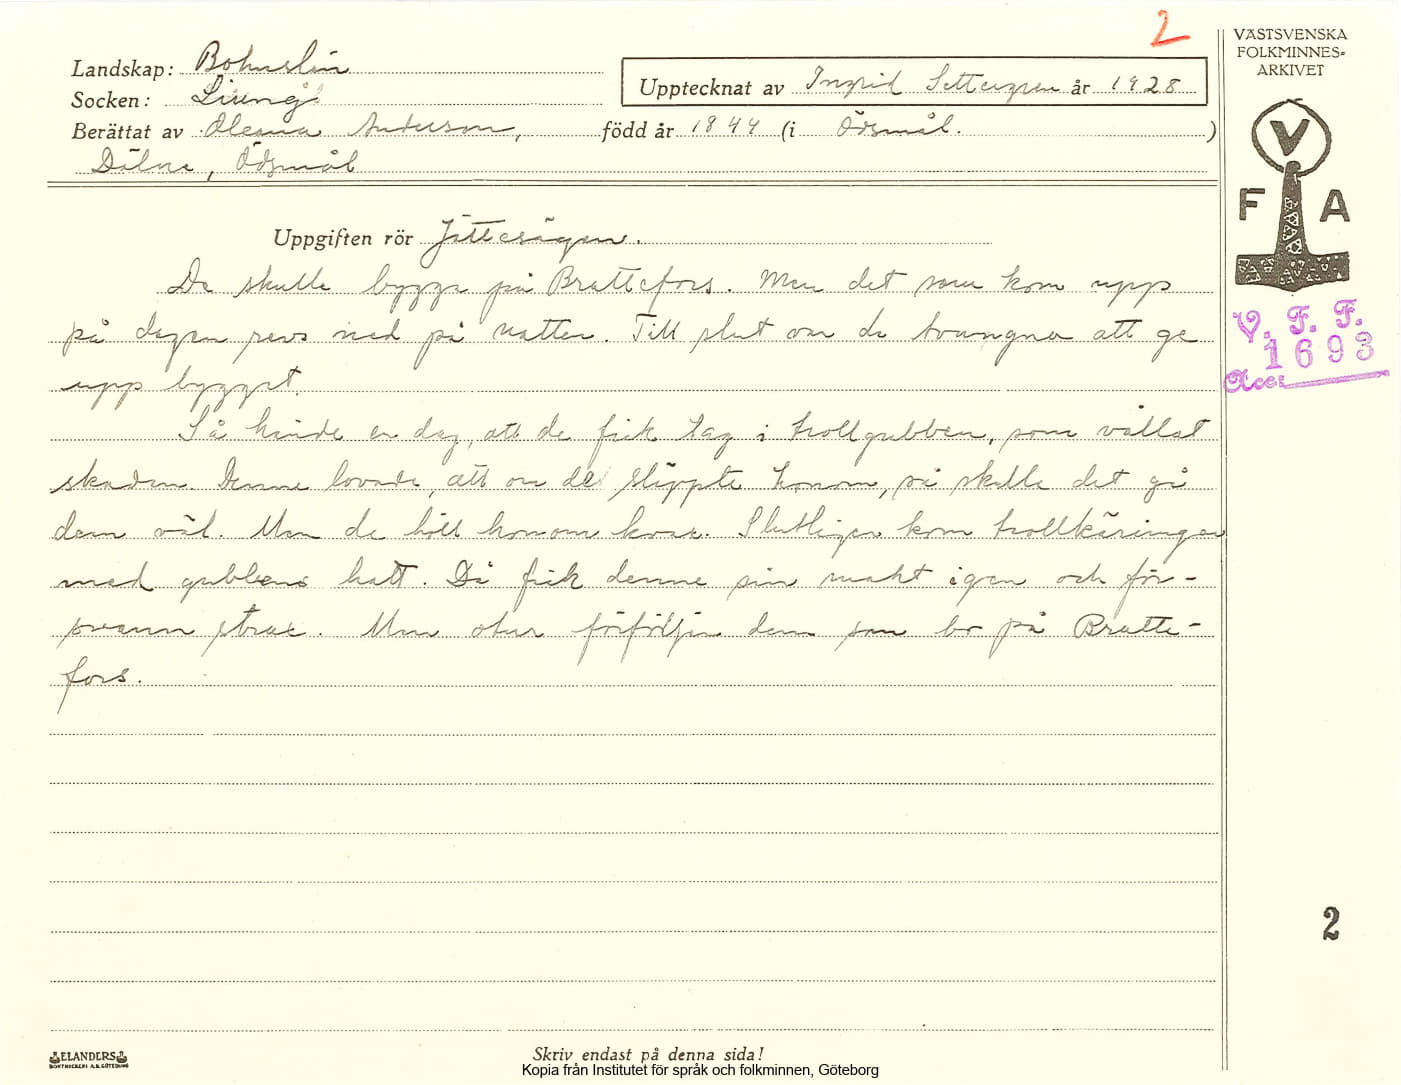 2
VÄSTSVENSKA
FOLKMINNES-
ARKIVET
Landskap: Bohuslän
Socken: Ljung
Upptecknat av Ingrid Settergren år 1928
Berättat av Oleana Anderson, född år 1844 (i Ödsmål.)
Ödsmål
V
F A
V. F. F.
1693
Acc:
Uppgiften rör Jättesägen.
De skulle bygga på Brattefors. Men det som kom upp
på dagen revs ned på natten. Till slut var de tvungna att ge
upp bygget.
Så hände en dag, att de fick tag i trollgubben, som vållat
skadan. Denne lovade, att om de släppte honom, så skulle det gå
dem väl. Men de höll honom kvar. Slutligen kom trollkäringen
med gubbens hatt. Då fick denne sin makt igen och för-
svann strax. Men otur förföljer dem som bo på Bratte-
fors.
2
ELANDERS
BOKTRYCKERI A.B. GÖTEBORG
Skriv endast på denna sida!
Kopia från Institutet för språk och folkminnen, Göteborg